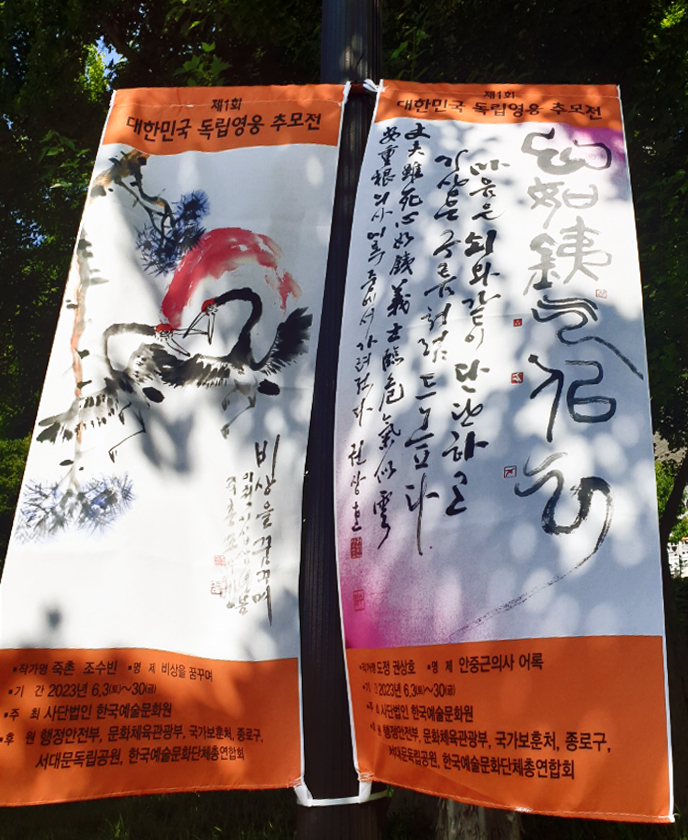 제1회
대한민국 독립영웅 추모전
비상을 꿈꾸며
•작가명 죽촌 조수빈 •명 제 비상을 꿈꾸며
•기 간 2023년 6.3(토)~30(금)
•주 최 사단법인 한국예술문화원
•후 원 행정안전부, 문화체육관광부, 국가보훈처, 종로구,
서대문독립공원, 한국예술문화단체총연합회
제1회
대한민국 독립영웅 추모전
心如銕
마음은 쇠와 같이 단단하고
기상은 구름처럼
丈夫雖死心如 義士臨危氣似雲
安重根 의사 어록 중에서 가려 적다 권상호
•작가명 도정 권상호 •명 제 안중근의사 어록
•기 간 2023년 6.3(토)~30(금)
•주 최 사단법인 한국예술문화원
•후 원 행정안전부, 문화체육관광부, 국가보훈처, 종로구,
서대문독립공원, 한국예술문화단체총연합회